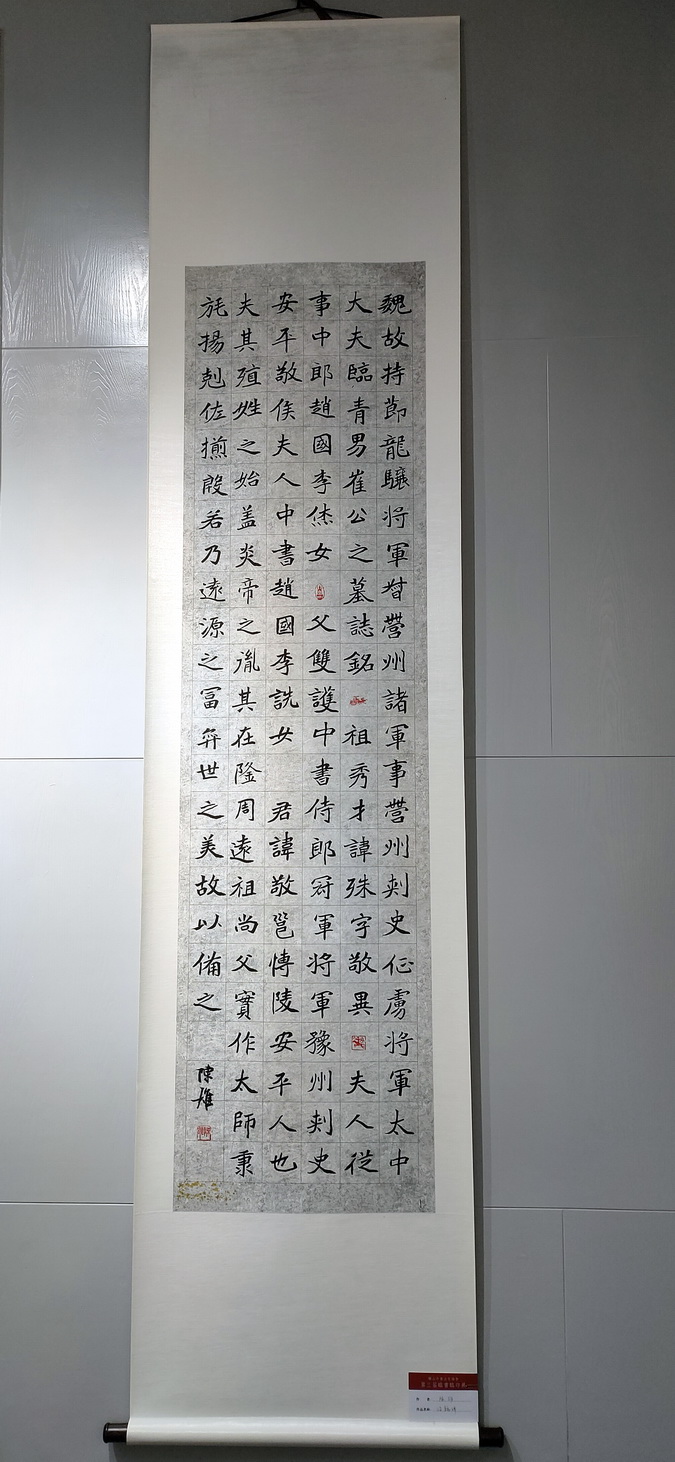 魏故持節龍驤将軍督營州諸軍事營州刺史征虜将軍太中
大夫臨青男崔公之墓誌銘 祖秀才諱殊字敬異 夫人從
事中郎趙國李烋女 父雙護中書侍郎冠軍将軍豫州刺史
安平敬侯夫人中書趙國李詵女 君諱敬邕博陵安平人也
夫其殖姓之始盖炎帝之胤其在隆周遠祖尚父實作太師秉
旄揚剋佐揃殷若乃遠源之冨弈世之美故以備之
陳雄